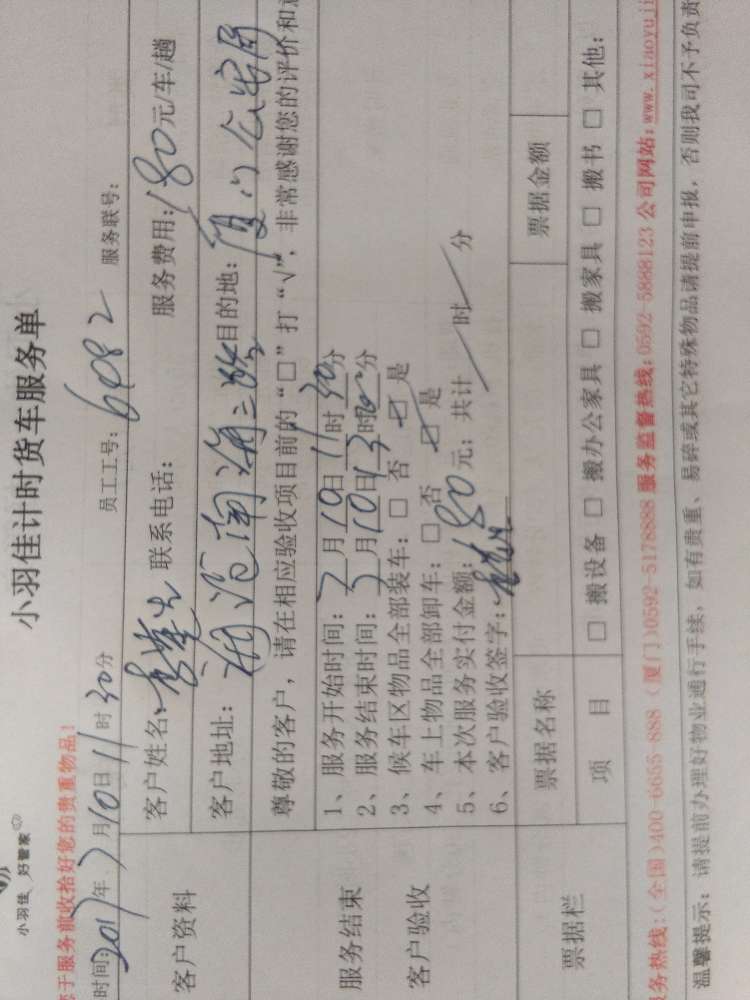 小羽佳 好管家
小羽佳计时货车服务单
您于服务前收拾好您的贵重物品！
时间:2017年7月10日11时30分 员工工号: 6982 服务联号:
客户资料
客户姓名: 联系电话: 服务费用:180元/车/趟
客户地址: 目的地: 厦门公安局
尊敬的客户，请在相应验收项目前的“□”打“√”，非常感谢您的评价和
服务结束
客户验收
1、服务开始时间：7月10日11时30分
2、服务结束时间： 月10日13时 分
3、候车区物品全部装车：□ 否 ☑ 是
4、车上物品全部卸车：□ 否 ☑ 是
5、本次服务实付金额：180元；共计 时 分
6、客户验收签字：
票据栏
票据名称 票据金额
项 目 □ 搬设备 □ 搬办公家具 □ 搬家具 □ 搬书 □ 其他:
务热线:(全国)400-6655-888 (厦门)0592-5178888 服务监督热线:0592-5888123 公司网站:www.xiaoyuji
温馨提示：请提前办理好物业通行手续，如有贵重、易碎或其它特殊物品请提前申报，否则我司不予负责